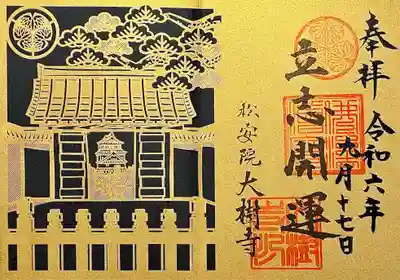 奉拝 令和六年
九月十七日
立志開運
松安院 大樹寺